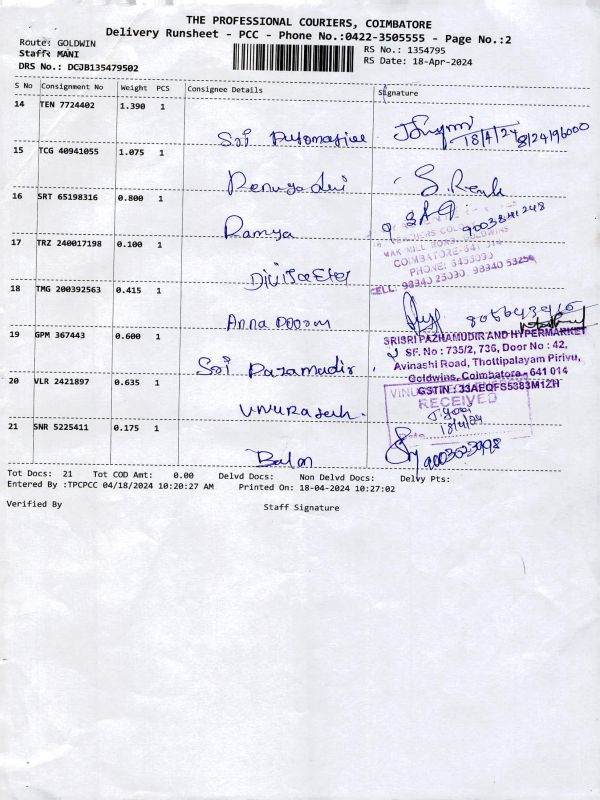 THE PROFESSIONAL COURIERS, COIMBATORE
Delivery Runsheet - PCC - Phone No.:0422-3505555 - Page No.:2
Route: GOLDWIN
Staff: MANI
DRS No.: DCJB135479502
RS No.: 1354795
RS Date: 18-Apr-2024
S No Consignment No Weight PCS Consignee Details Signature
14 TEN 7724402 1.390 1
Sri Automative 18/4/24
15 TCG 40941055 1.075 1
Renugadevi S. Renu
16 SRT 65198316 0.800 1
Ramya
17 TRZ 240017198 0.100 1
MAK MILL ROAD, GOLDWINS
COIMBATORE-641 014
PHONE:
CELL: 98940 25090, 98940
18 TMG 200392563 0.415 1
Anna
19 GPM 367443 0.600 1
SRISRI PAZHAMUDIR AND HYPERMARKET
SF. No : 735/2, 736, Door No : 42,
Avinashi Road, Thottipalayam Pirivu,
Goldwins, Coimbatore - 641 014
GSTIN : 33AEQFS5383M1ZH
Sri Pazamudir
20 VLR 2421897 0.635 1
RECEIVED
18/4/24
21 SNR 5225411 0.175 1
9003623998
Tot Docs: 21 Tot COD Amt: 0.00 Delvd Docs: Non Delvd Docs: Delvy Pts:
Entered By :TPCPCC 04/18/2024 10:20:27 AM Printed On: 18-04-2024 10:27:02
Verified By Staff Signature